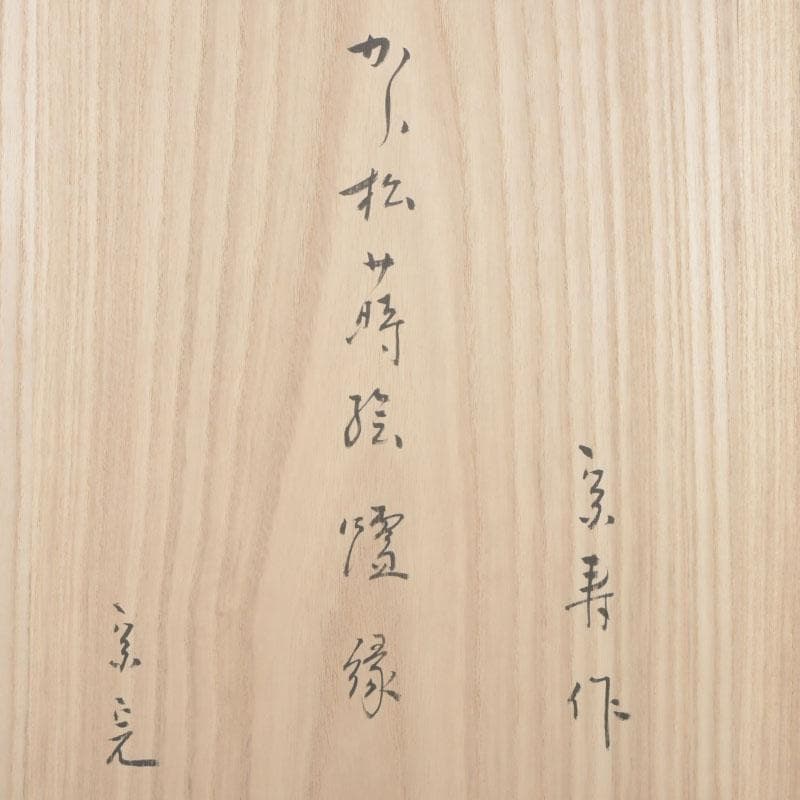 宗寿作
松蒔絵爐縁
宗完